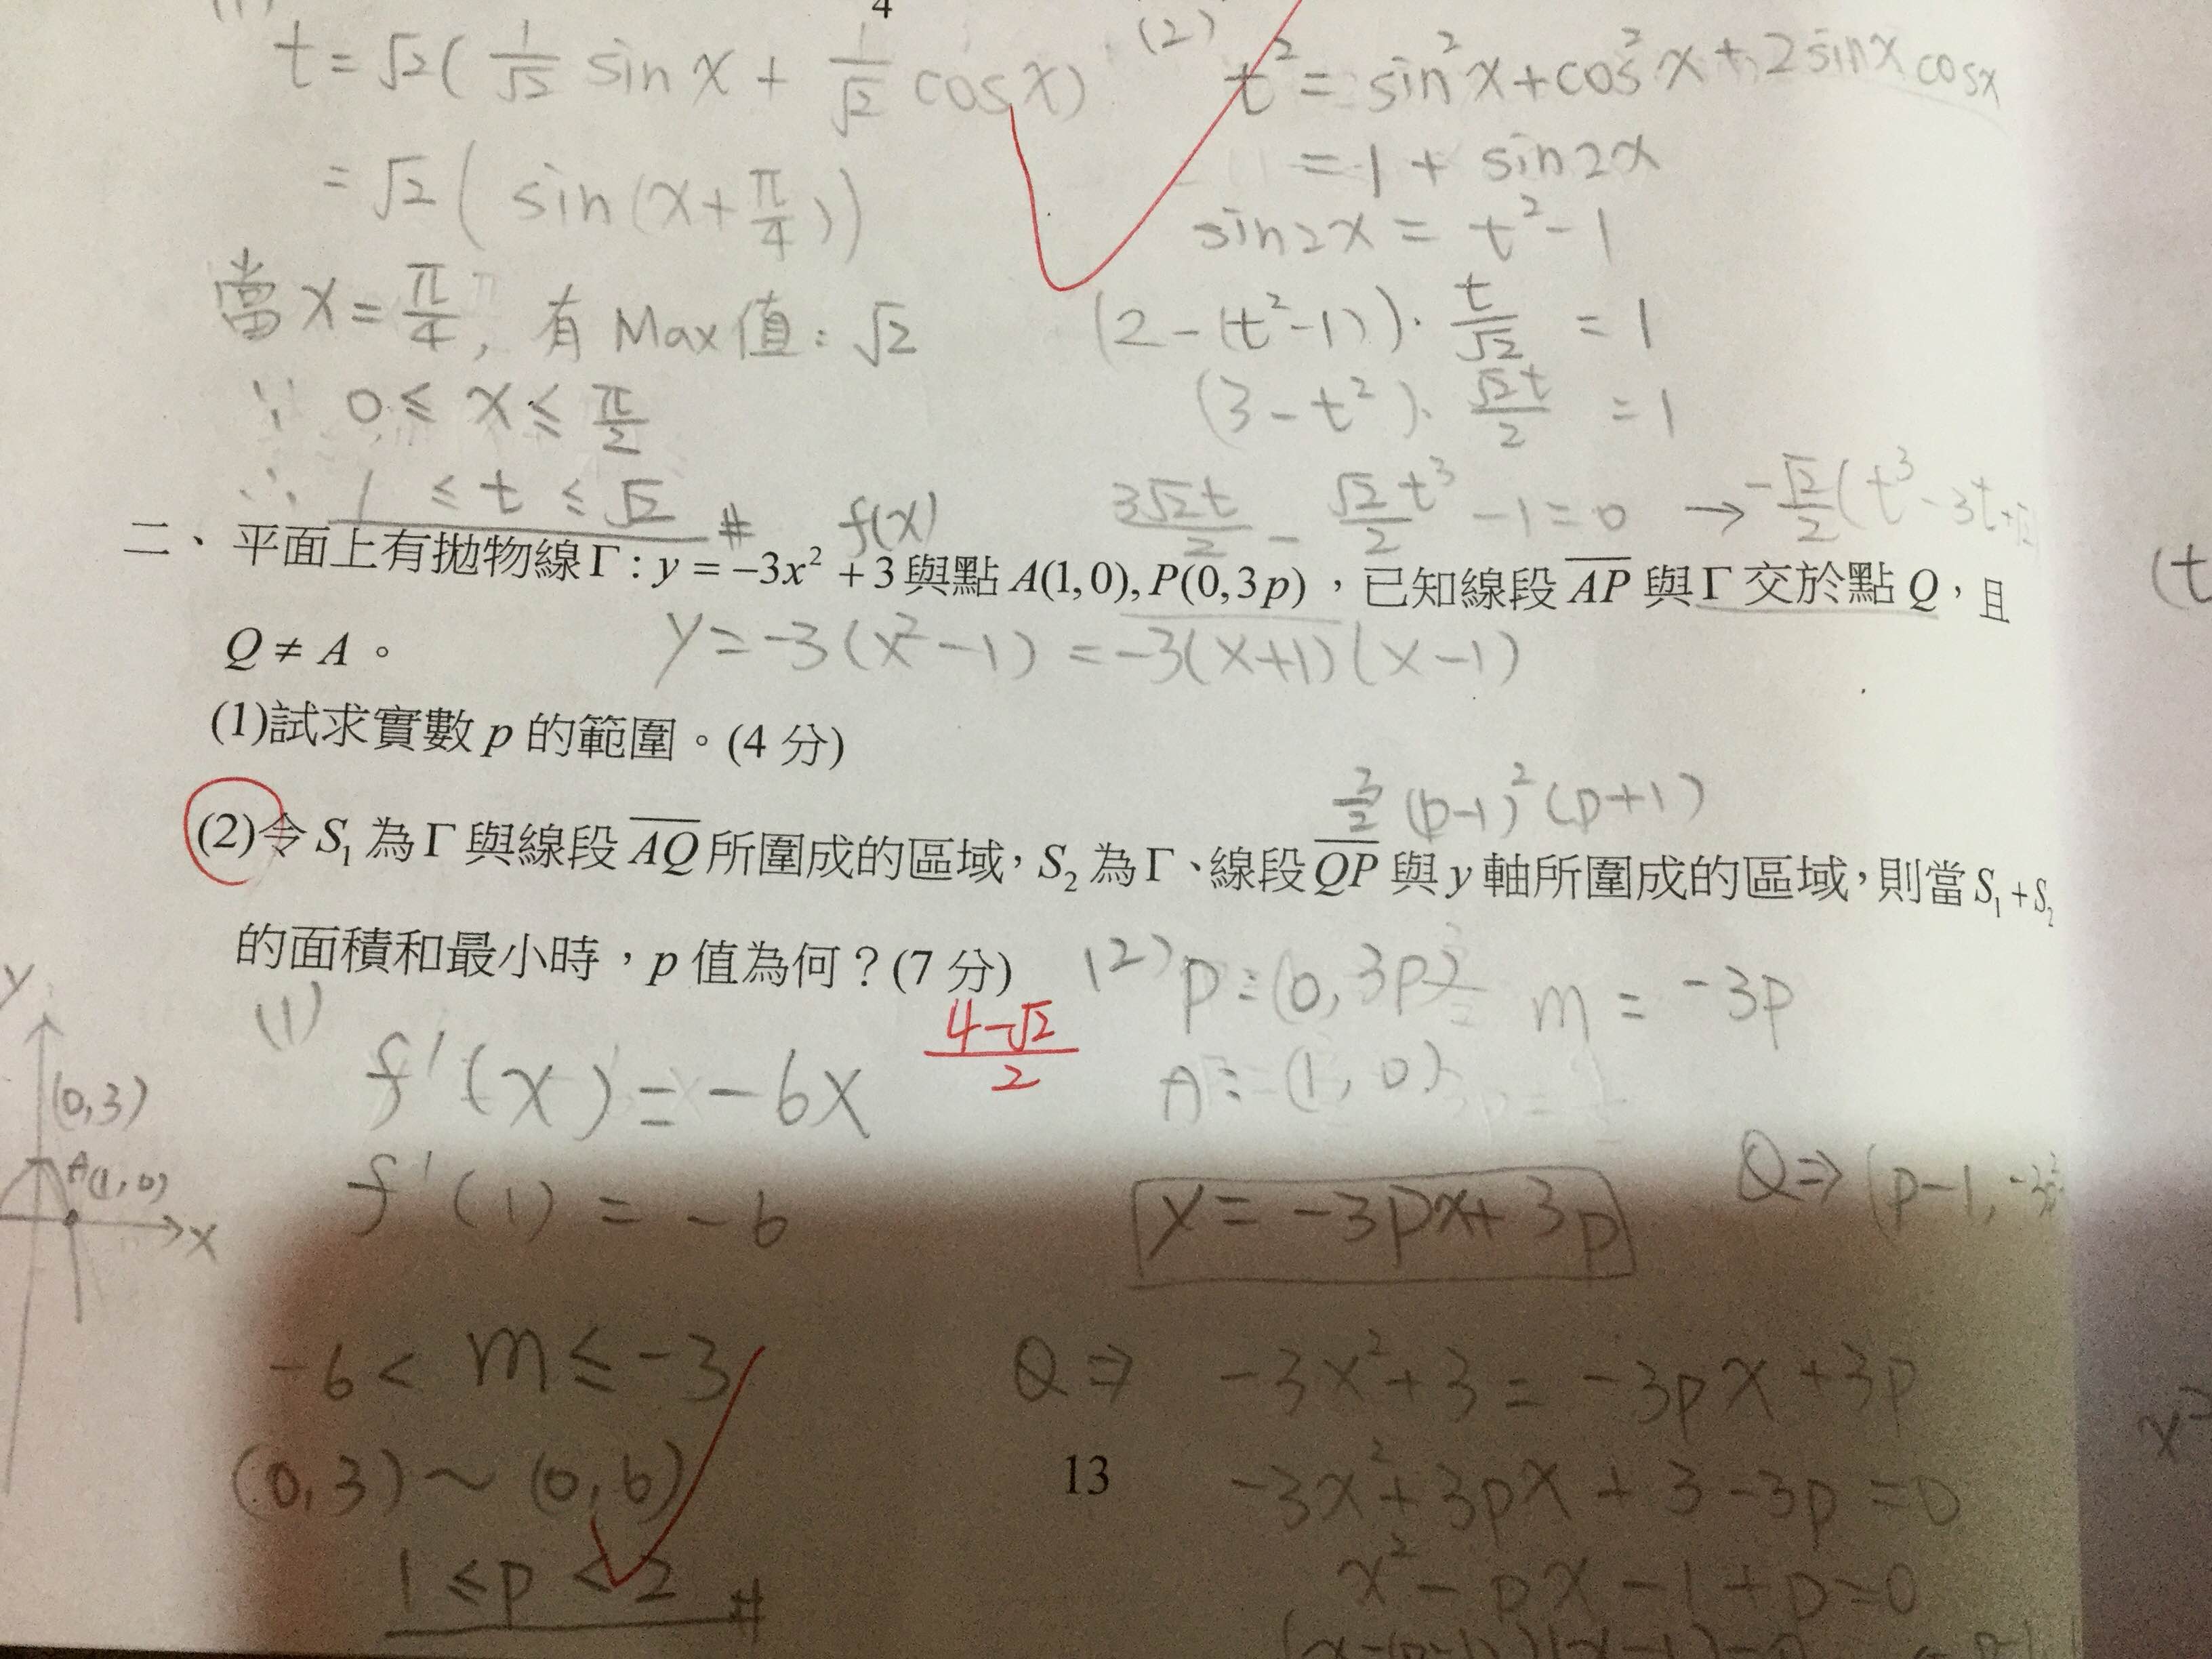 4
t = √2( 1/√2 sin x + 1/√2 cos x)
= √2( sin(x+π/4))
當 x = π/4, 有 Max值: √2
∵ 0 ≤ x ≤ π/2
∴ 1 ≤ t ≤ √2 #
(2) t² = sin²x + cos²x + 2 sin x cos x
= 1 + sin2x
sin2x = t² - 1
(2-(t²-1))· t/√2 = 1
(3-t²)· √2t/2 = 1
3√2t/2 - √2/2 t³ - 1 = 0 → -√2/2 (t³ - 3t +
f(x)
二、平面上有拋物線 Γ : y = −3x² + 3 與點 A(1,0), P(0,3p),已知線段 AP 與 Γ 交於點 Q,且
(t
Q ≠ A。
y = -3(x²-1) = -3(x+1)(x-1)
(1)試求實數 p 的範圍。(4 分)
3/2 (p-1)²(p+1)
(2)令 S₁ 為 Γ 與線段 AQ 所圍成的區域,S₂ 為 Γ、線段 QP 與 y 軸所圍成的區域,則當 S₁+S₂
的面積和最小時,p 值為何?(7 分)
4-√2/2
y
(0,3)
A(1,0)
x
(1)
f'(x) = -6x
f'(1) = -6
-6 < m ≤ -3
(0,3) ~ (0,6)
1 ≤ p < 2 #
(2) P: (0, 3p) m = -3p
A: (1, 0)
y = -3px + 3p
Q ⇒ (p-1, -3
Q ⇒ -3x²+3 = -3px+3p
-3x²+3px+3-3p=0
x²-px-1+p=0
13